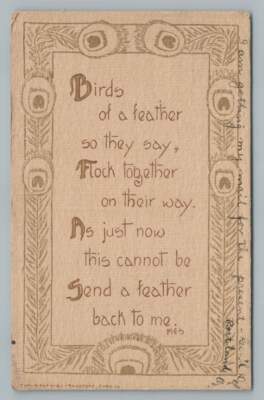 Birds
of a feather
so they say,
Flock together
on their way.
As just now
this cannot be
Send a feather
back to me.
I am getting my mail for the present